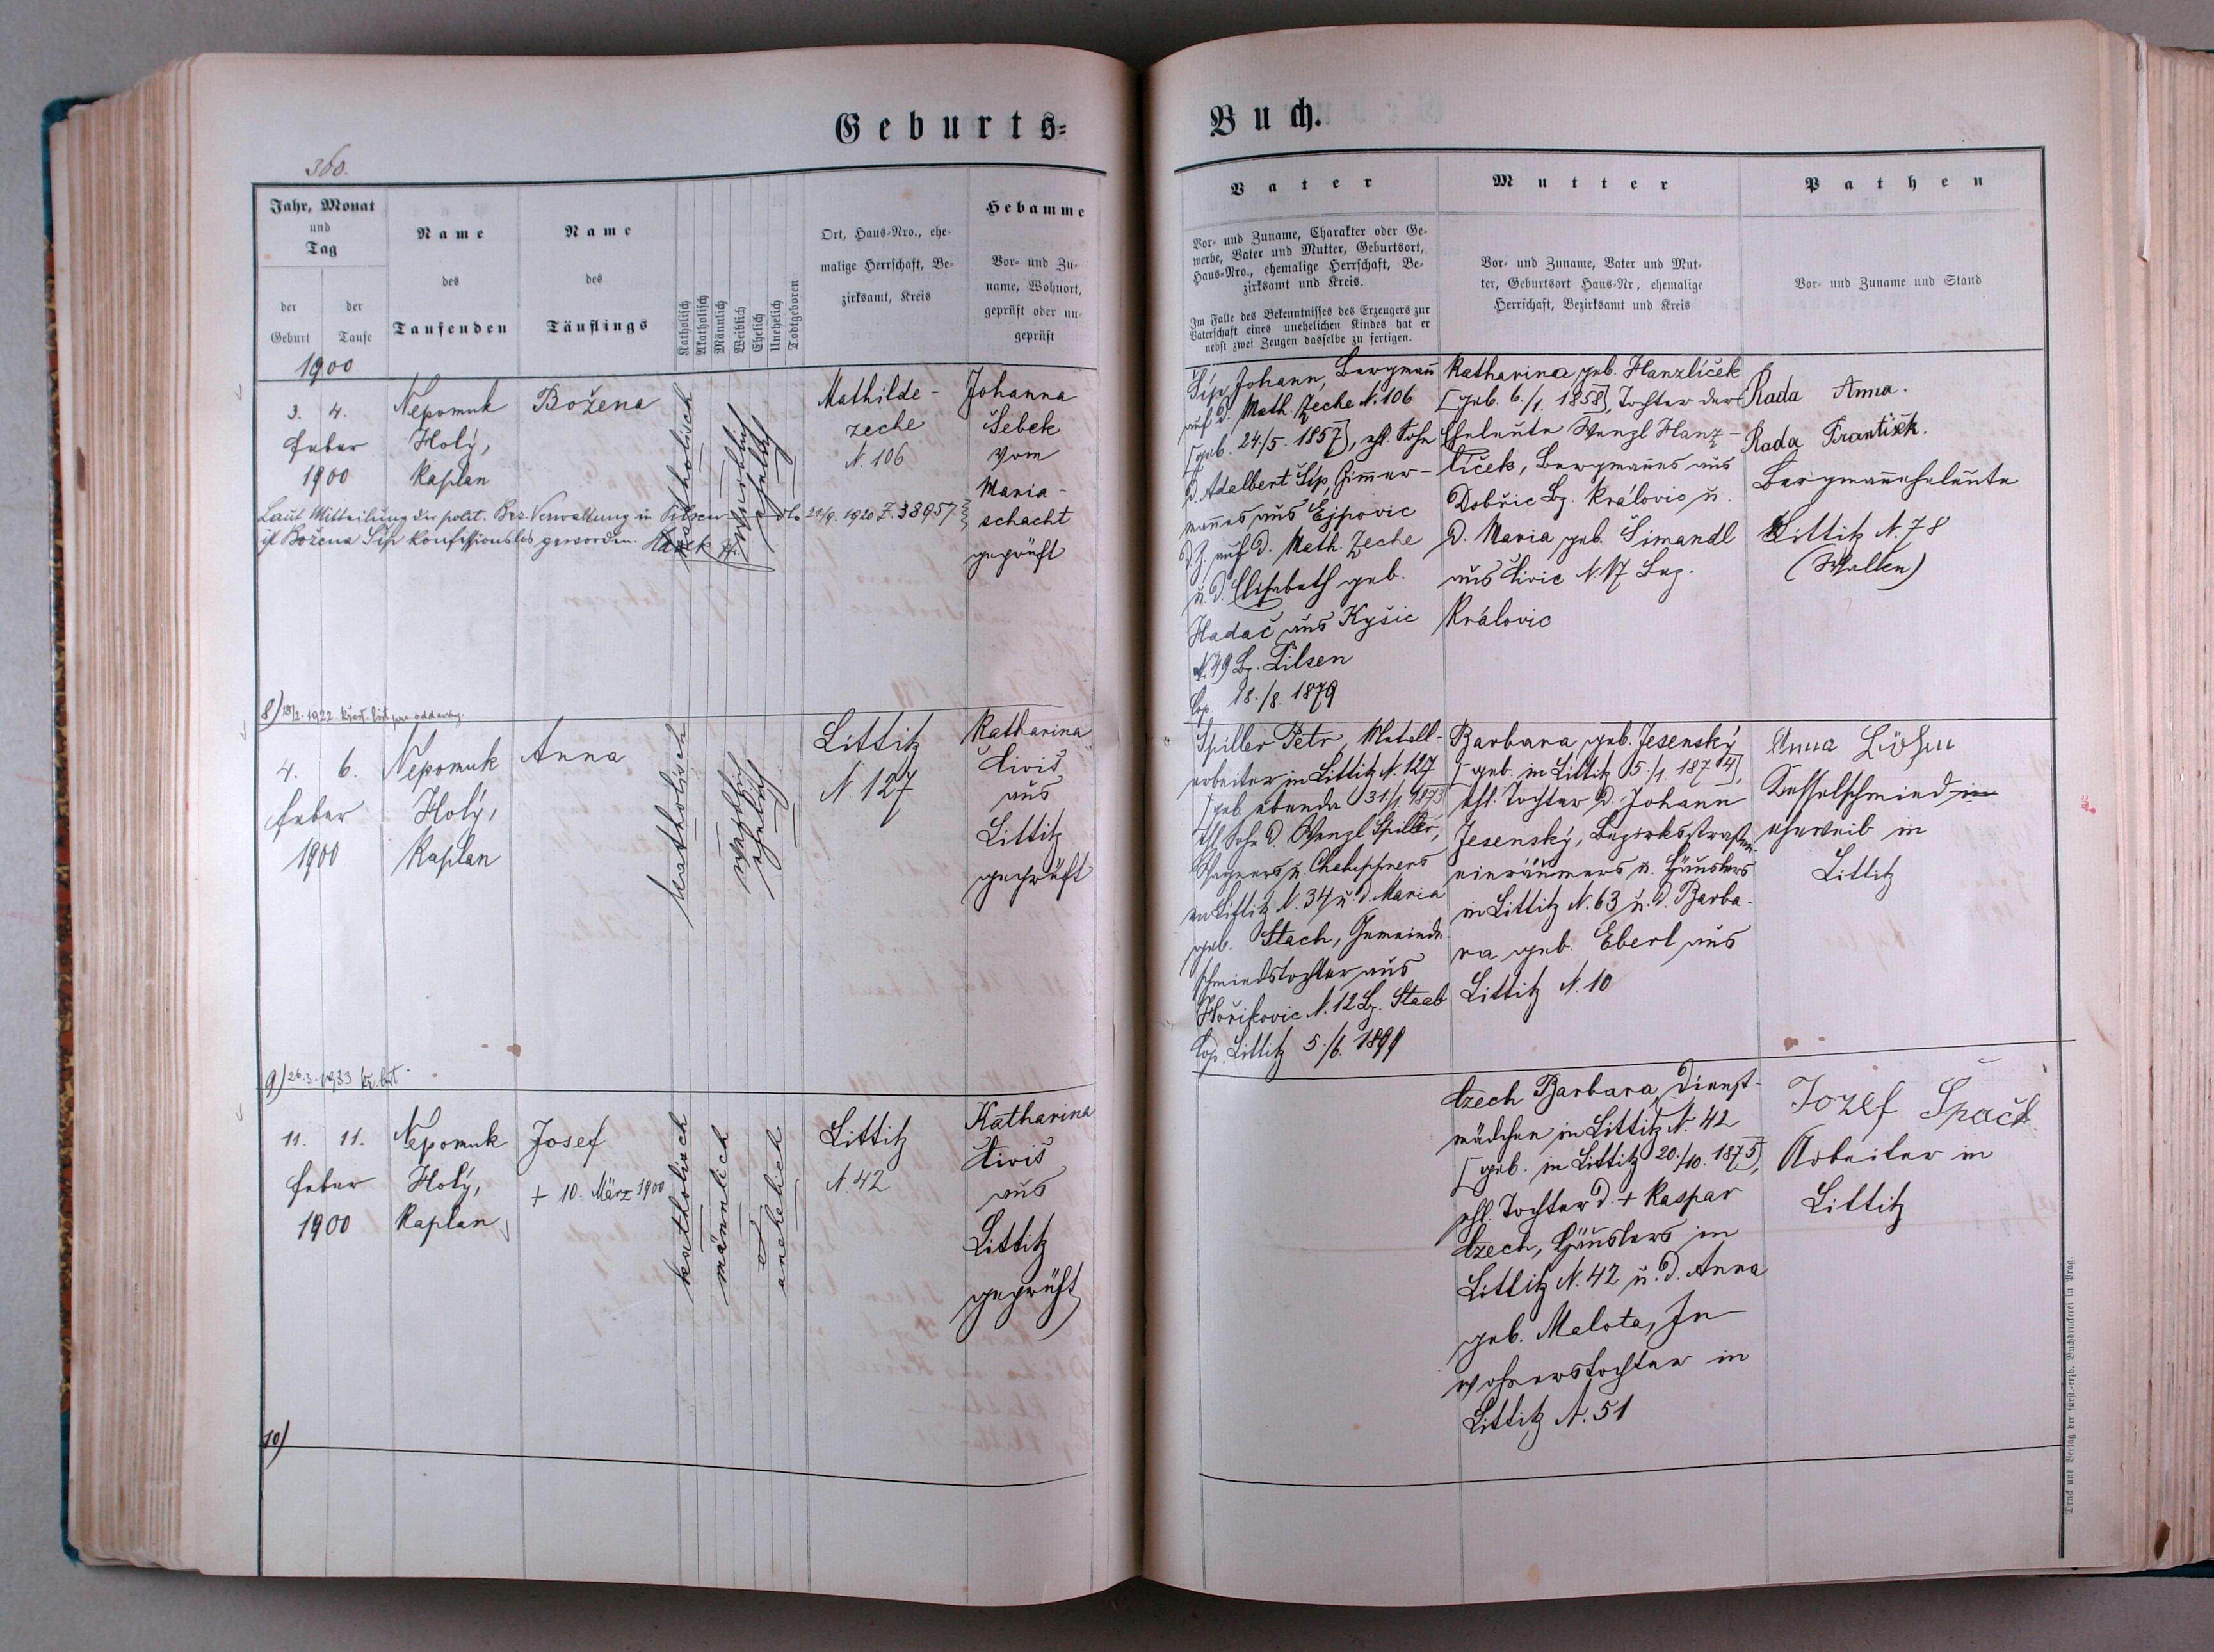 Geburts=
Buch.
360.
Jahr, Monat
und
Tag
der
Geburt
der
Taufe
Name
des
Taufenden
Name
des
Täuflings
Katholisch
Akatholisch
Männlich
Weiblich
Ehelich
Unehelich
Todtgeboren
Ort, Haus-Nro., ehe-
malige Herrschaft, Be-
zirksamt, Kreis
Hebamme
Vor- und Zu-
name, Wohnort,
geprüft oder un-
geprüft
Vater
Vor- und Zuname, Charakter oder Ge-
werbe, Vater und Mutter, Geburtsort,
Haus-Nro., ehemalige Herrschaft, Be-
zirksamt und Kreis.
Im Falle des Bekenntnisses des Erzeugers zur
Vaterschaft eines unehelichen Kindes hat er
nebst zwei Zeugen dasselbe zu fertigen.
Mutter
Vor- und Zuname, Vater und Mut-
ter, Geburtsort Haus-Nr, ehemalige
Herrschaft, Bezirksamt und Kreis
Pathen
Vor- und Zuname und Stand
1900
3. 4.
Feber
1900
Nepomuk
Holý,
Kaplan
Božena
katholisch
weiblich
ehelich
Mathilde-
zeche
N. 106
Johanna
Šebek
vom
Maria-
schacht
geprüft
Laut Mitteilung der polit. Bez. Verwaltung in Pilsen dto 21/9. 1920 Z. 38957
ist Božena Šíp konfessionslos geworden.
Šíp Johann, Bergmann
auf d. Math. Zeche N. 106
[geb. 24/5. 1857], ehl. Sohn
d. Adalbert Šíp, Zimmer-
mannes aus Ejpovic
d. Z. auf d. Math. Zeche
u. d. Elisabeth geb.
Hadač aus Kyšic
N. 49 Bz. Pilsen
Cop. 18./8. 1879
Katharina geb. Hanzlíček
[geb. 6./1. 1858], Tochter der
Eheleute Wenzl Hanz-
líček, Bergmannes aus
Dobřic Bz. Královic u.
d. Maria geb. Šimandl
aus Livic N. 17 Bez.
Královic
Rada Anna.
Rada František.
Bergmannseheleute
Littitz N. 78
(Walken)
8) 18/2. 1922 křest. list pro oddavky.
4. 6.
Feber
1900
Nepomuk
Holý,
Kaplan
Anna
katholisch
weiblich
ehelich
Littitz
N. 127
Katharina
Diviš
aus
Littitz
geprüft
Spiller Petr, Metall-
arbeiter in Littitz N. 127
[geb. ebenda 31/1. 1873
ehl. Sohn d. Wenzl Spiller,
Wagners u. Chaluppners
in Littitz N. 34 u. d. Maria
geb. Stach, Gemeinde-
schmiedstochter aus
Hořikovic N. 12 Bz. Staab
Cop. Littitz 5./6. 1899
Barbara geb. Jesenský
[geb. in Littitz 5./1. 1874],
ehl. Tochter d. Johann
Jesenský, Bezirksstraßen-
einräumers u. Häuslers
in Littitz N. 63 u. d. Barba-
ra geb. Eberl aus
Littitz N. 10
Anna Löhm
Kesselschmied in
eheweib in
Littitz
9) 26.3. 1933 kř. list.
11. 11.
Feber
1900
Nepomuk
Holý,
Kaplan
Josef
+ 10. März 1900
katholisch
männlich
unehelich
Littitz
N. 42
Katharina
Diviš
aus
Littitz
geprüft
Czech Barbara, Dienst-
mädchen in Littitz N. 42
[geb. in Littitz 20./10. 1875],
ehl. Tochter d. + Kaspar
Czech, Häuslers in
Littitz N. 42 u. d. Anna
geb. Malota, In-
wohnerstochter in
Littitz N. 51
Jozef Špaček
Arbeiter in
Littitz
10)
Druck und Verlag der fürst.-erzb. Buchdruckerei in Prag.